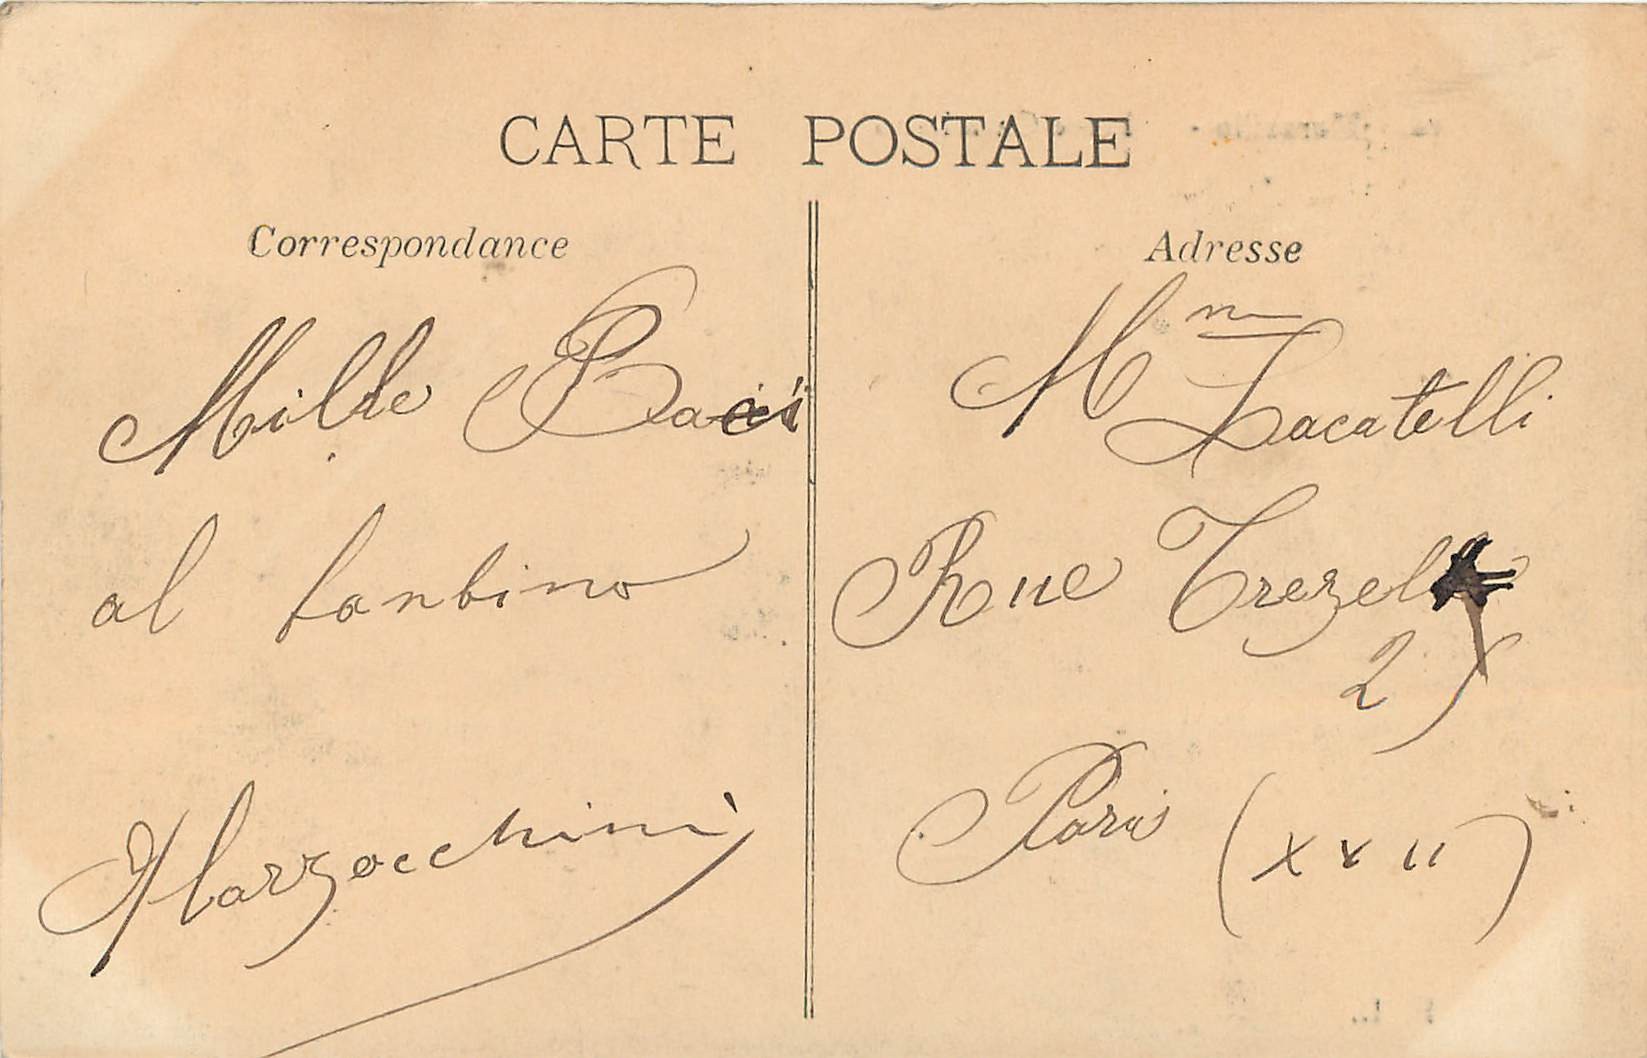 CARTE POSTALE
Correspondance
Mille Baci
al banbino
Marzocchini
Adresse
Mme Zacatelli
Rue Trezel
27
Paris (XVII)